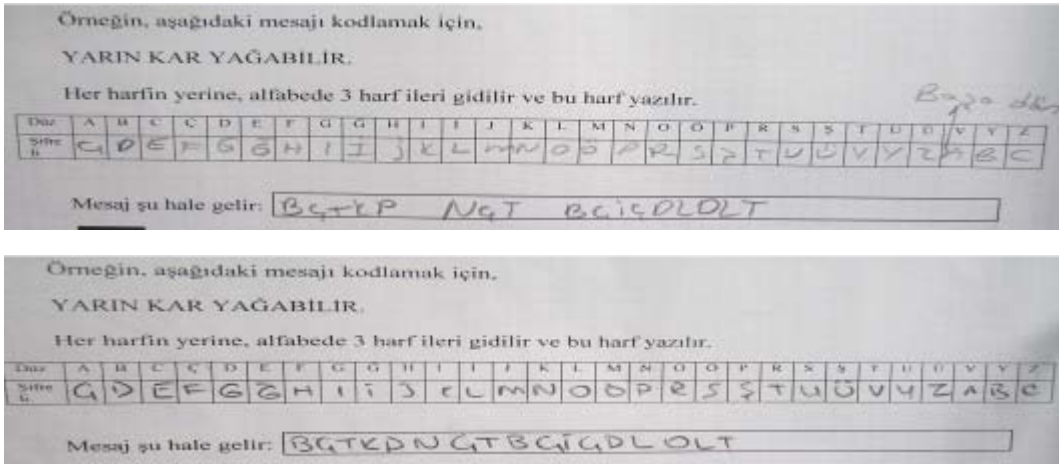 Örneğin, aşağıdaki mesajı kodlamak için,
YARIN KAR YAĞABİLİR.
Her harfin yerine, alfabede 3 harf ileri gidilir ve bu harf yazılır.
Başa
Düz A B C Ç D E F G Ğ H I İ J K L M N O Ö P R S Ş T U Ü V Y Z
Şifreli Ç D E F G Ğ H I İ J K L M N O Ö P R S Ş T U Ü V Y Z A B C
Mesaj şu hale gelir: BÇTKP NÇT BÇİÇDLOLT
Örneğin, aşağıdaki mesajı kodlamak için,
YARIN KAR YAĞABİLİR.
Her harfin yerine, alfabede 3 harf ileri gidilir ve bu harf yazılır.
Düz A B C Ç D E F G Ğ H I İ J K L M N O Ö P R S Ş T U Ü V Y Z
Şifreli Ç D E F G Ğ H I İ J K L M N O Ö P R S Ş T U Ü V Y Z A B C
Mesaj şu hale gelir: BÇTKPNÇTBÇİÇDLOLT